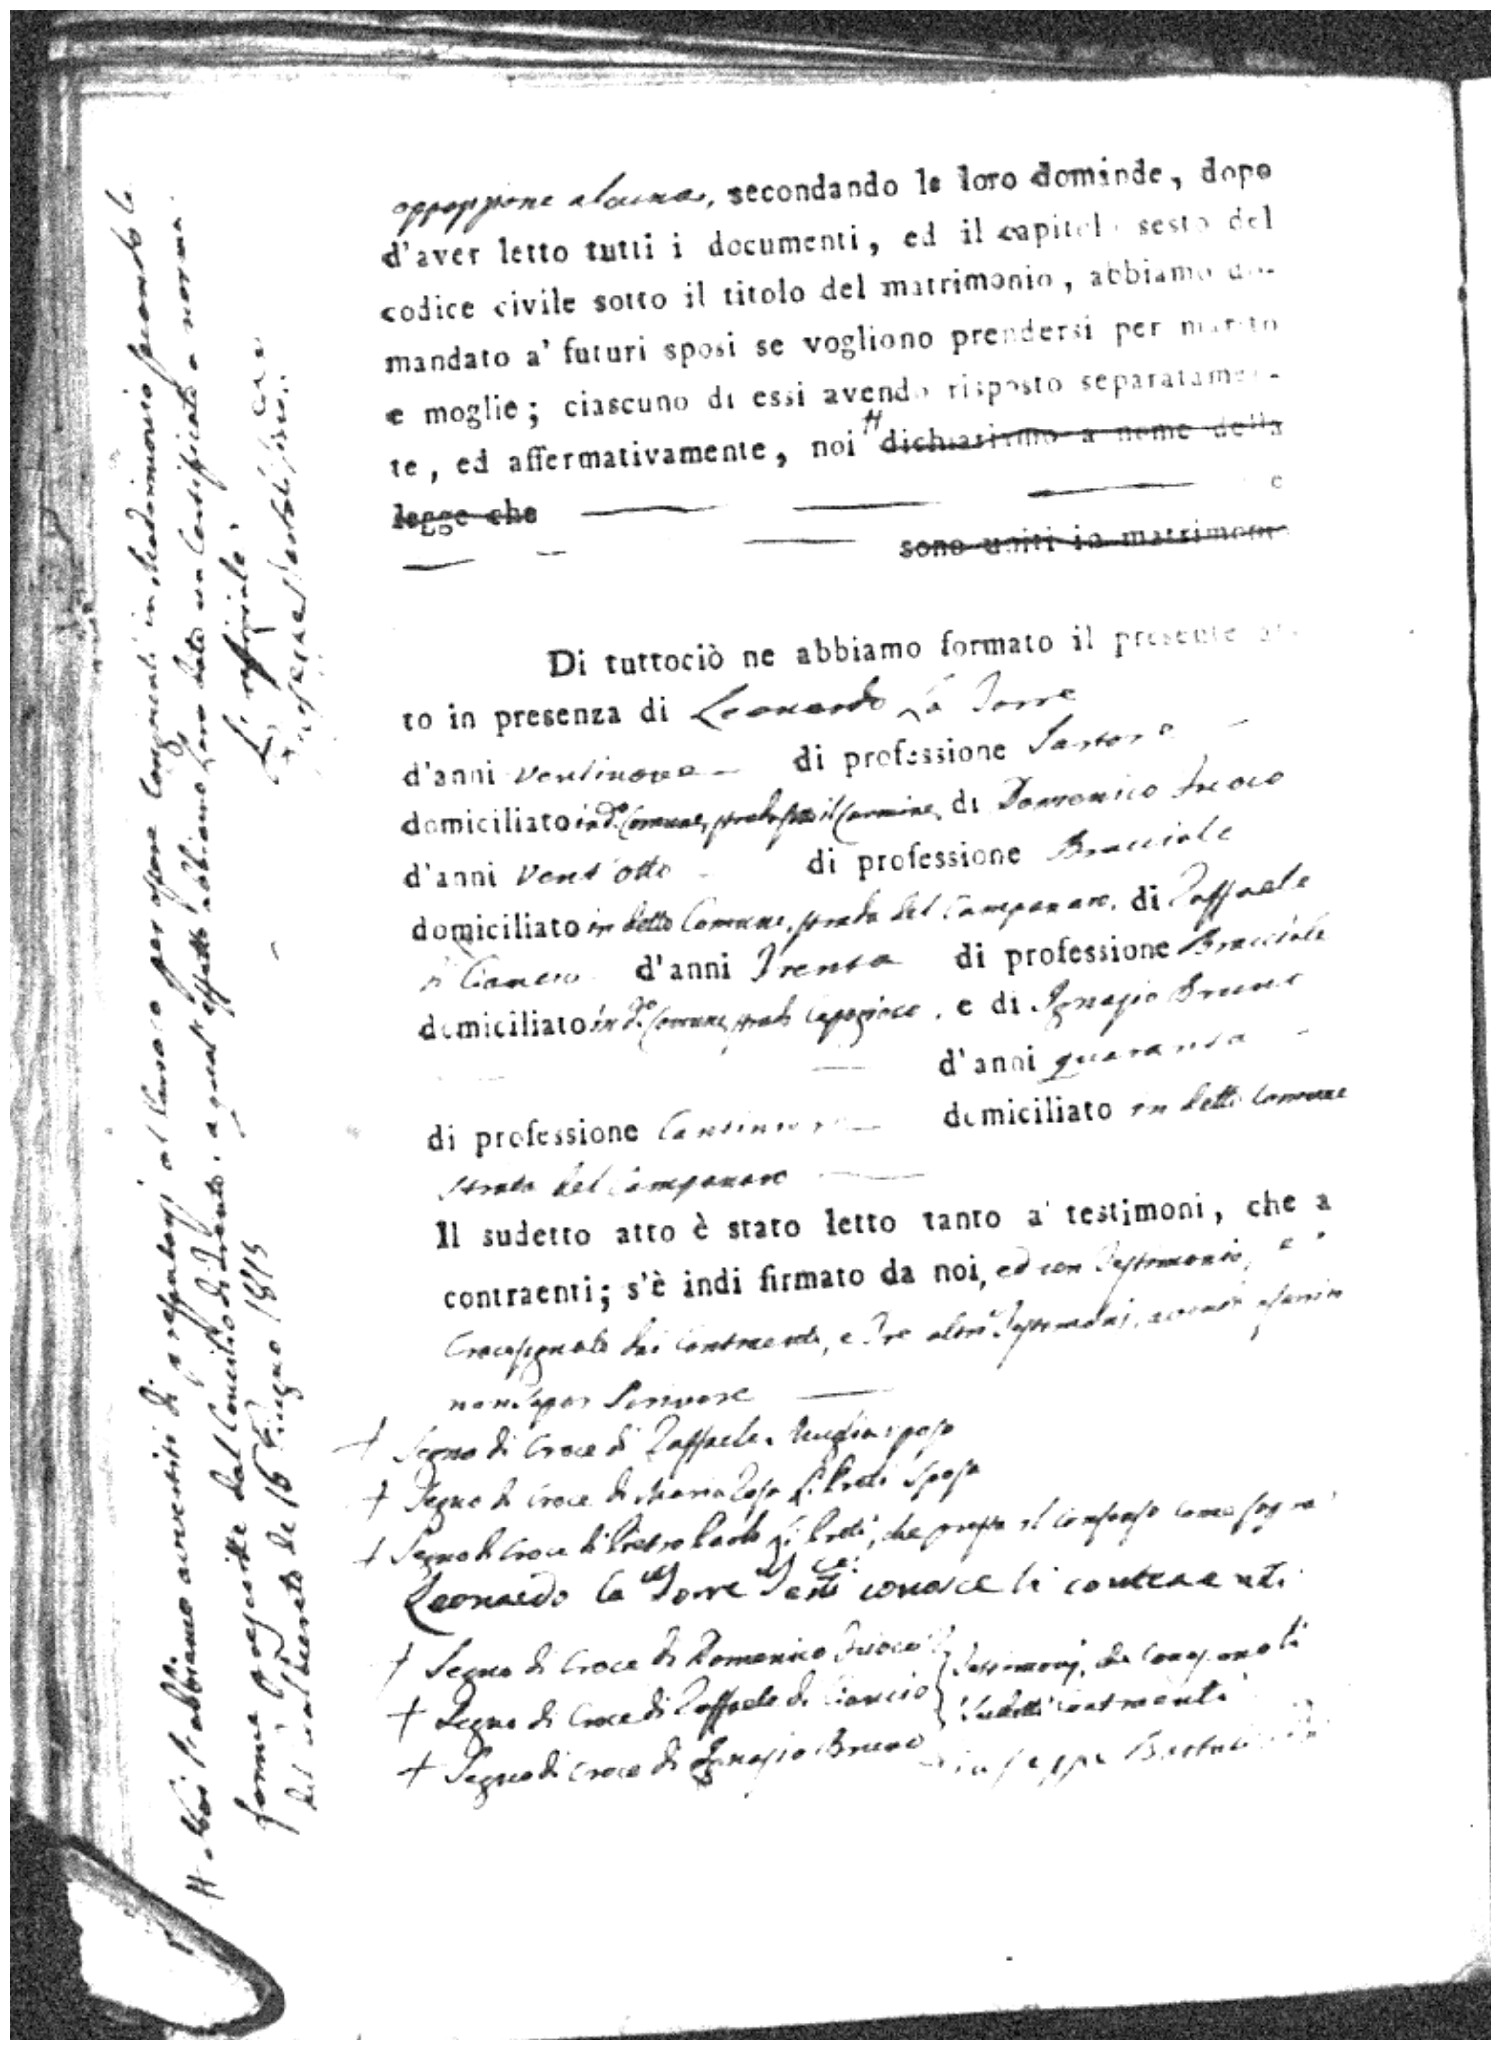 opposizione alcuna, secondando le loro dominde, dopo
d'aver letto tutti i documenti, ed il capitolo sesto del
codice civile sotto il titolo del matrimonio, abbiamo do-
mandato a' futuri sposi se vogliono prendersi per marito
e moglie; ciascuno di essi avendo risposto separatamen-
te, ed affermativamente, noi # dichiariamo a nome della
legge che e
sono uniti in matrimonio
Di tuttociò ne abbiamo formato il presente at-
to in presenza di Leonardo La Torre
d'anni ventinove di professione Sartore
domiciliato in d.o Comune, strada il Carmine, di Domenico Fuoco
d'anni vent'otto di professione Bracciale
domiciliato in detto Comune, strada del Campanaro, di Raffaele
di Ciancio d'anni Trenta di professione Bracciale
domiciliato in d.o Comune, strada Capogioco, e di Ignazio Bruno
d'anni quaranta
di professione Cantiniere domiciliato in detto Comune
strada del Campanaro
Il sudetto atto è stato letto tanto a' testimoni, che a
contraenti; s'è indi firmato da noi, ed un Testimonio, e
Crocesegnato dai Contraenti, e Tre altri Testimonj, avendo asserito
non saper Scrivere
+ Segno di Croce di Raffaele sposo
+ Segno di Croce di Maria Rosa Li Preti Sposa
+ Segno di Croce di Pietro Paolo Li Preti, che presta il consenso come sopra
Leonardo la Torre Testi.ce conosce li contraenti
+ Segno di Croce di Domenico Fuoco
+ Segno di Croce di Raffaele di Ciancio Testimonj, che conoscono li
+ Segno di Croce di Ignazio Bruno sudetti contraenti
Giuseppe
# Noi li abbiamo avvertiti di presentarsi al Parroco per essere congiunti in Matrimonio secondo le
forme prescritte dal Concilio di Trento, a qual'effetto abbiamo loro dato un Certificato a norma
del real decreto de' 16 Giugno 1815
L'uffiziale
Giuseppe